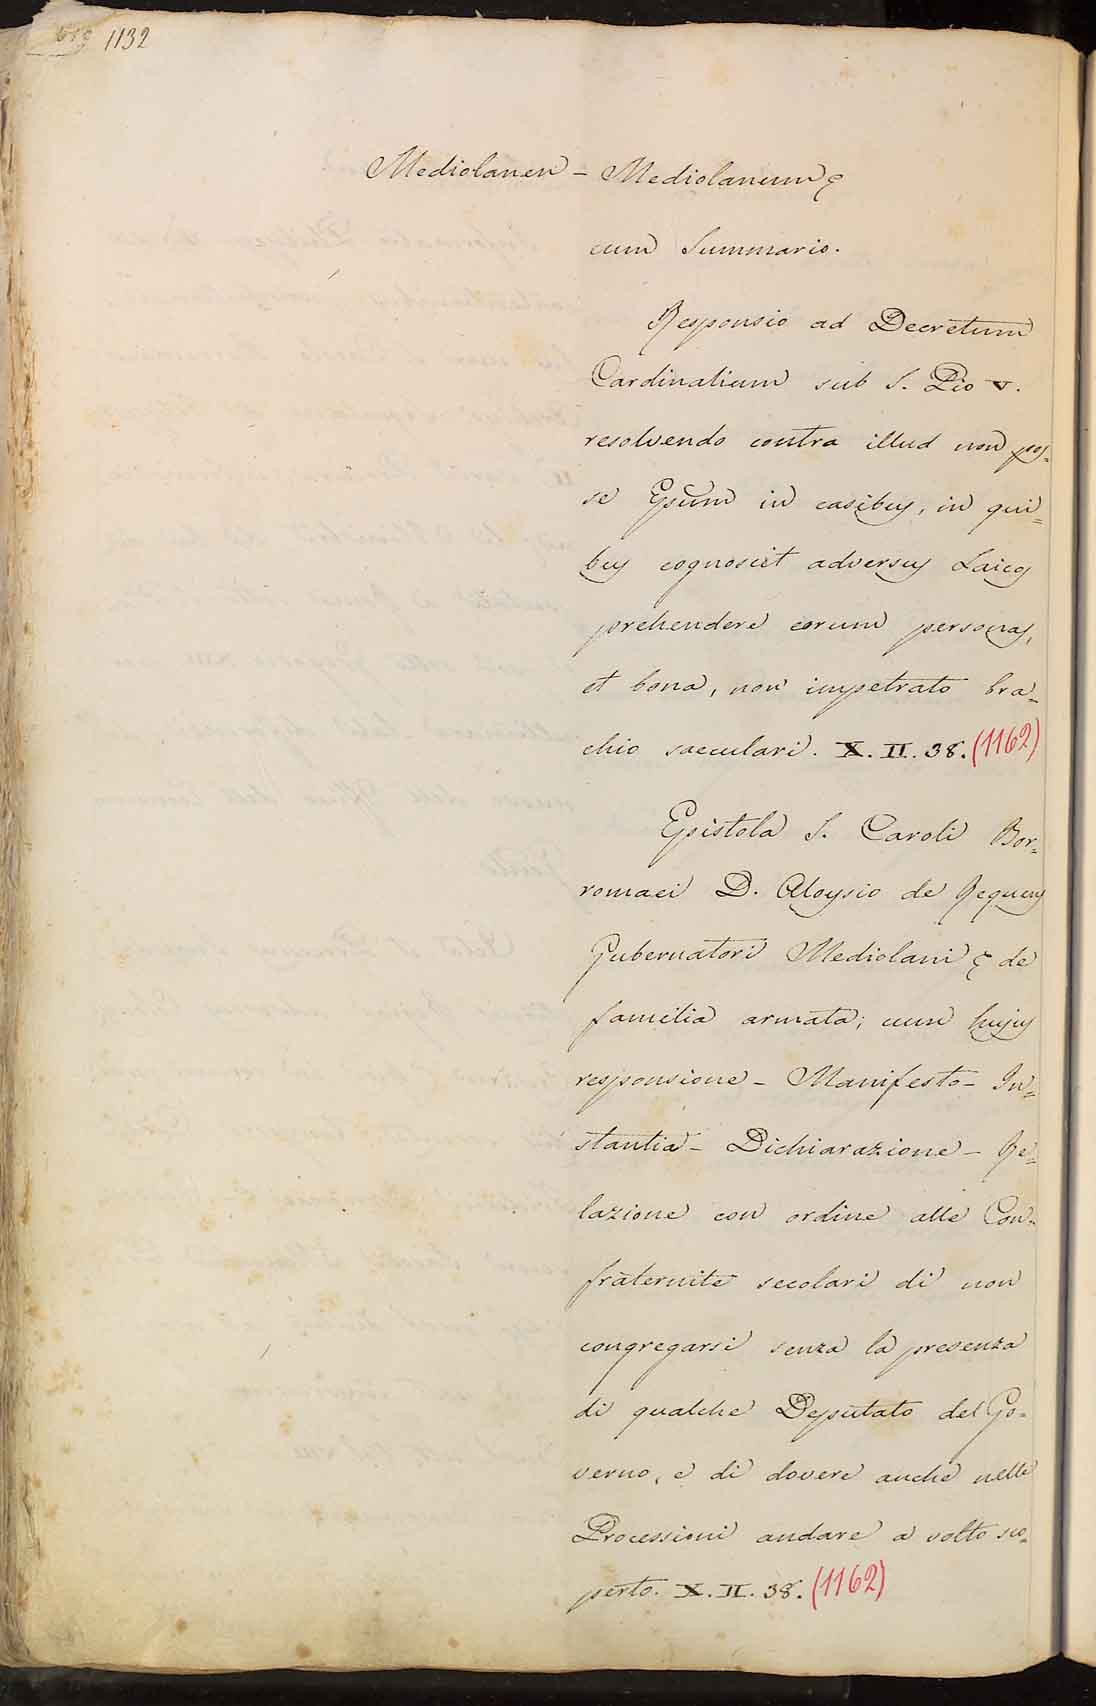 1132
Mediolanen - Mediolanum &
cum Summario.
Responsio ad Decretum
Cardinalium sub S. Pio V.
resolvendo contra illud non pos=
se Epum in casibus, in qui=
bus cognoscit adversus Laicos
prehendere eorum personas,
et bona, non impetrato bra=
chio saeculari. X. II. 38. (1162)
Epistola S. Caroli Bor=
romaei D. Aloysio de Requens
Gubernatori Mediolani & de
familia armata; cum hujus
responsione - Manifesto - In=
stantia - Dichiarazione - Re=
lazione con ordine alle Con=
fraternite secolari di non
congregarsi senza la presenza
di qualche Deputato del Go=
verno, e di dovere anche nelle
Processioni andare a volto sco=
perto. X. II. 38. (1162)